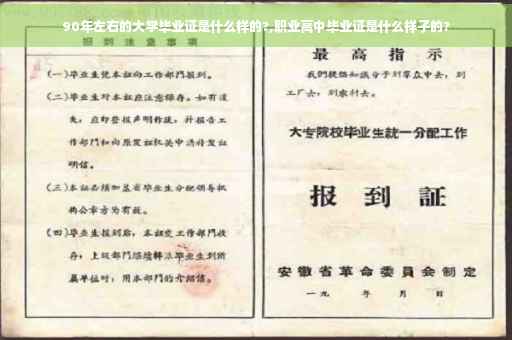 90年左右的大学毕业证是什么样的?,职业高中毕业证是什么样子的?
报到注意事项
(一)毕业生凭本证向工作部門报到。
(二)毕业生对本证应注意保存。如有遗
失,应即登报声明作废,并报告工
作部門和向原发证机关申請补发证
明信。
(三)本证必须加盖省毕业生分配领导机
构公章方为有效。
(四)毕业生报到后,本证交工作部門收
存;上级部門继續轉派毕业生到所
属单位时,用本部門的介绍信。
最高指示
我們提倡知識分子到羣众中去,到
工厂去,到农村去。
大专院校毕业生統一分配工作
报到証
安徽省革命委員会制定
一九 年 月 日